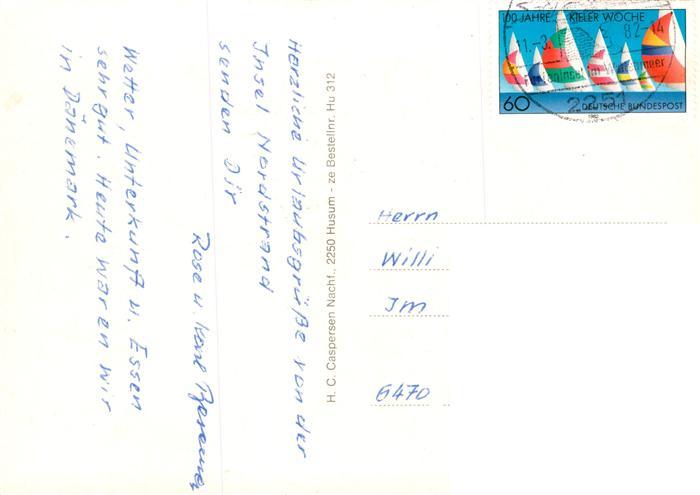 100 JAHRE KIELER WOCHE
82-14
2251
60 DEUTSCHE BUNDESPOST
1982
Herzliche Urlaubsgrüße von der
Insel Nordstrand
senden Dir
Rose u. Karl
Wetter, Unterkunft u. Essen
sehr gut. Heute waren wir
in Dänemark.
H. C. Caspersen Nachf., 2250 Husum - ze Bestellnr. Hu 312
Herrn
Willi
Im
6470